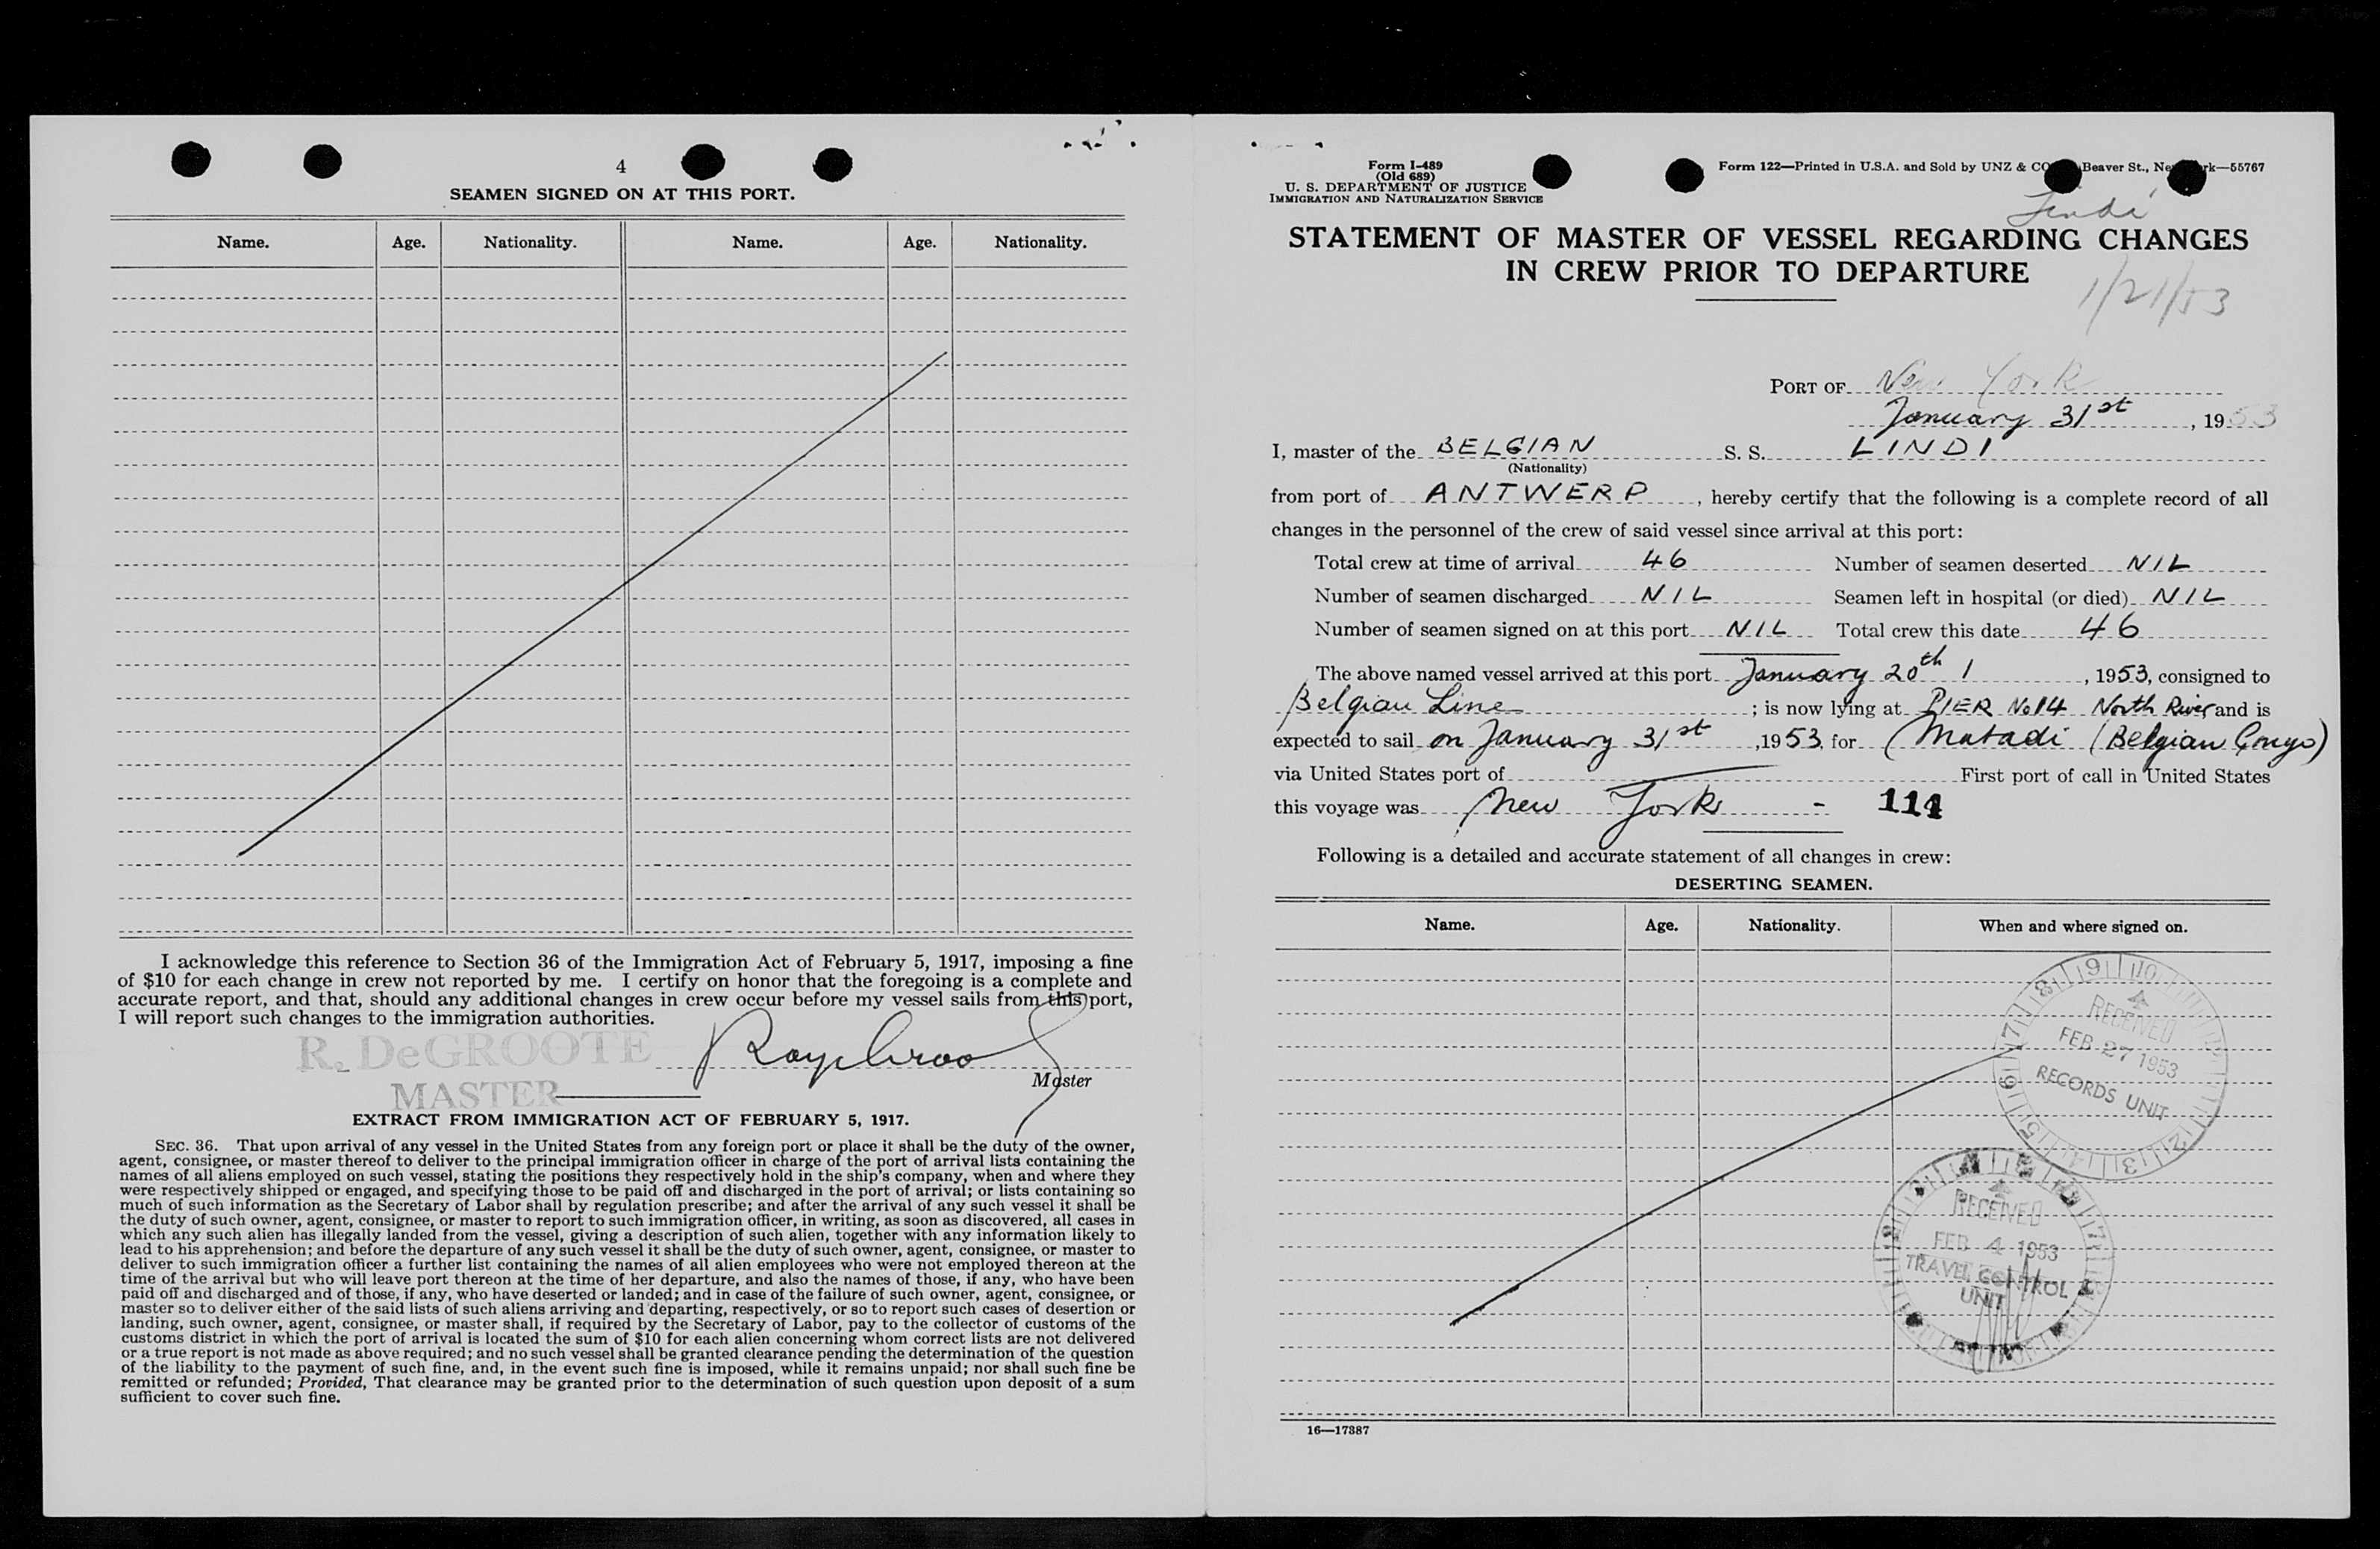 4
SEAMEN SIGNED ON AT THIS PORT.
Name. Age. Nationality. Name. Age. Nationality.
I acknowledge this reference to Section 36 of the Immigration Act of February 5, 1917, imposing a fine
of $10 for each change in crew not reported by me. I certify on honor that the foregoing is a complete and
accurate report, and that, should any additional changes in crew occur before my vessel sails from this port,
I will report such changes to the immigration authorities.
R. DeGROOTE
MASTER
Master
EXTRACT FROM IMMIGRATION ACT OF FEBRUARY 5, 1917.
SEC. 36. That upon arrival of any vessel in the United States from any foreign port or place it shall be the duty of the owner,
agent, consignee, or master thereof to deliver to the principal immigration officer in charge of the port of arrival lists containing the
names of all aliens employed on such vessel, stating the positions they respectively hold in the ship's company, when and where they
were respectively shipped or engaged, and specifying those to be paid off and discharged in the port of arrival; or lists containing so
much of such information as the Secretary of Labor shall by regulation prescribe; and after the arrival of any such vessel it shall be
the duty of such owner, agent, consignee, or master to report to such immigration officer, in writing, as soon as discovered, all cases in
which any such alien has illegally landed from the vessel, giving a description of such alien, together with any information likely to
lead to his apprehension; and before the departure of any such vessel it shall be the duty of such owner, agent, consignee, or master to
deliver to such immigration officer a further list containing the names of all alien employees who were not employed thereon at the
time of the arrival but who will leave port thereon at the time of her departure, and also the names of those, if any, who have been
paid off and discharged and of those, if any, who have deserted or landed; and in case of the failure of such owner, agent, consignee, or
master so to deliver either of the said lists of such aliens arriving and departing, respectively, or so to report such cases of desertion or
landing, such owner, agent, consignee, or master shall, if required by the Secretary of Labor, pay to the collector of customs of the
customs district in which the port of arrival is located the sum of $10 for each alien concerning whom correct lists are not delivered
or a true report is not made as above required; and no such vessel shall be granted clearance pending the determination of the question
of the liability to the payment of such fine, and, in the event such fine is imposed, while it remains unpaid; nor shall such fine be
remitted or refunded; Provided, That clearance may be granted prior to the determination of such question upon deposit of a sum
sufficient to cover such fine.
Form I-489
(Old 689)
U. S. DEPARTMENT OF JUSTICE
IMMIGRATION AND NATURALIZATION SERVICE
Form 122—Printed in U.S.A. and Sold by UNZ & CO Beaver St., Ne rk—55767
Lindi
STATEMENT OF MASTER OF VESSEL REGARDING CHANGES
IN CREW PRIOR TO DEPARTURE
1/21/53
PORT OF New York
January 31st, 1953
I, master of the BELGIAN S. S. LINDI
(Nationality)
from port of ANTWERP, hereby certify that the following is a complete record of all
changes in the personnel of the crew of said vessel since arrival at this port:
Total crew at time of arrival 46 Number of seamen deserted NIL
Number of seamen discharged NIL Seamen left in hospital (or died) NIL
Number of seamen signed on at this port NIL Total crew this date 46
The above named vessel arrived at this port January 20th, 1953, consigned to
Belgian Line; is now lying at PIER No 14 North River and is
expected to sail on January 31st, 1953, for Matadi (Belgian Congo)
via United States port of First port of call in United States
this voyage was New York - 114
Following is a detailed and accurate statement of all changes in crew:
DESERTING SEAMEN.
Name. Age. Nationality. When and where signed on.
RECEIVED
FEB 27 1953
RECORDS UNIT
RECEIVED
FEB 4 1953
TRAVEL CONTROL
UNIT
16—17387